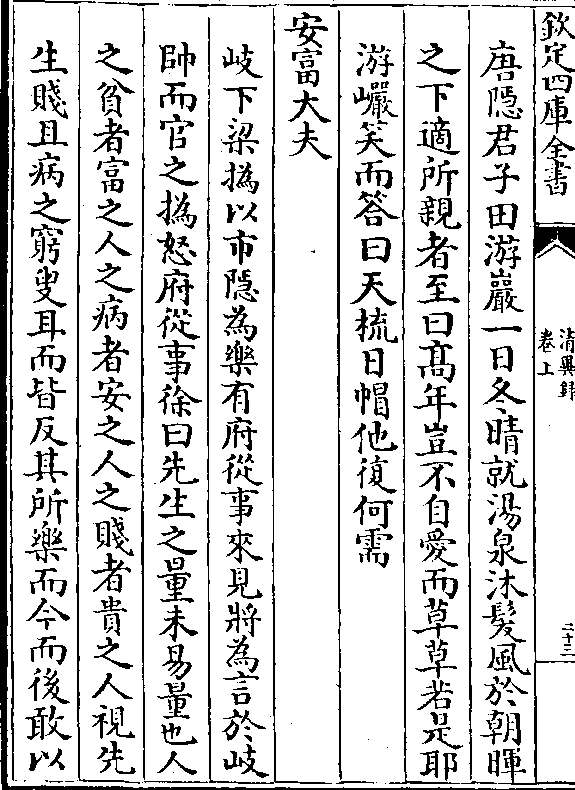 欽定四庫全書
清異錄
卷上
二十三
唐隠君子田游巖一日冬晴就湯泉沐髮風於朝暉
之下適所親者至曰髙年豈不自愛而草草若是耶
游巖笑而答曰天梳日帽他復何需
安富大夫
岐下梁撝以市隠為樂有府從事來見將為言於岐
帥而官之撝怒府從事徐曰先生之量未易量也人
之貧者富之人之病者安之人之賤者貴之人視先
生賤且病之窮叟耳而皆反其所樂而今而後敢以